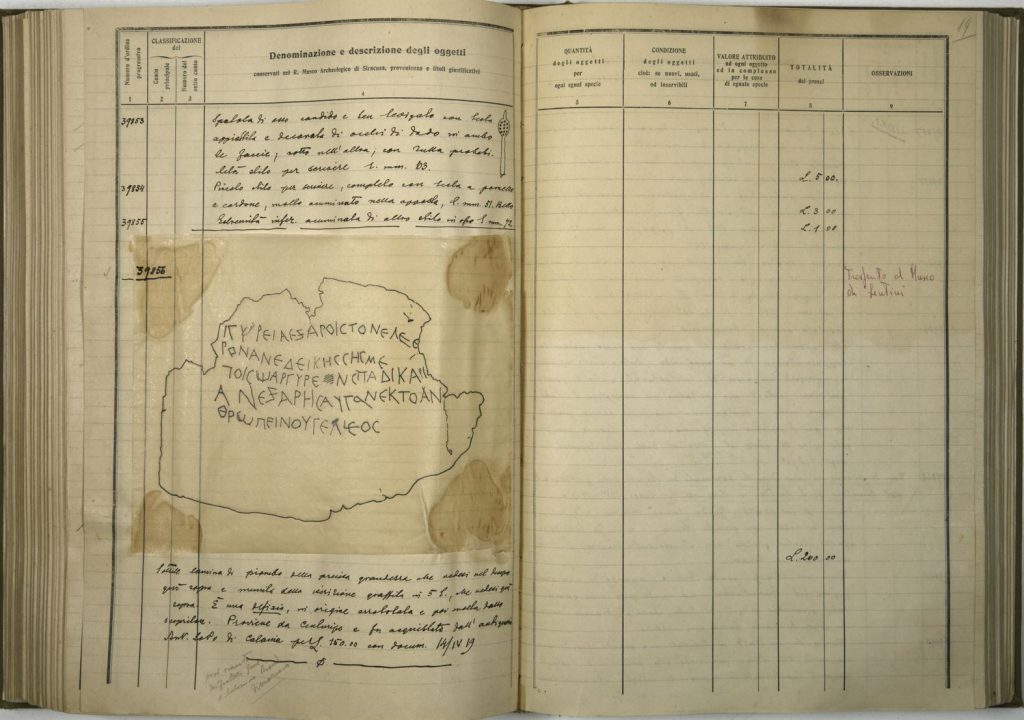 Numero d'ordine progressivo
CLASSIFICAZIONE
del
Comma principale
Numero del
Denominazione e descrizione degli oggetti
conservati nel R. Museo Archeologico di Siracusa, provenienza e titoli giustificativi
1 2 3 4
39853 Spatola di osso candido e ben levigato con testa
appiattita e decorata di occhi di dado in ambo
le faccie; rotto nell'altra; con tutta probabi-
lità stilo per scrivere l. mm. 83.
39854 Piccolo stilo per scrivere, completo con testa a pomello
e cordone, molto acuminato nella opposta, l. mm. 51.
39855 Estremità infer. acuminata di altro stilo in osso l. mm. 72
39856
ΡΟΝΑΝΕΔΕΙΚΗССΗСΜΕ
ΘΡΩΠΕΙΝΟΥΓΕΝΕΟС
Sottile lamina di piombo della precisa grandezza che vedesi nel disegno
qui sopra e munita della iscrizione graffita in 5 l., che vedesi qui
sopra. È una defixio, in origine arrotolata e poi svolta dallo
scopritore. Proviene da Centuripe e fu acquistata dall'antiquario
Ant. LoPo di Catania per L. 150.00 con docum. 14/IV 19
19
QUANTITÀ
degli oggetti
per
ogni egual specie
CONDIZIONE
degli oggetti
cioè: se nuovi, usati,
od inservibili
VALORE ATTRIBUITO
ad ogni oggetto
od in complesso
per le cose
di eguale specie
TOTALITÀ
dei prezzi
OSSERVAZIONI
5 6 7 8 9
L. 5 00.
L. 3 00
L. 1 00
Trasferito al Museo
di Lentini
L. 200 00